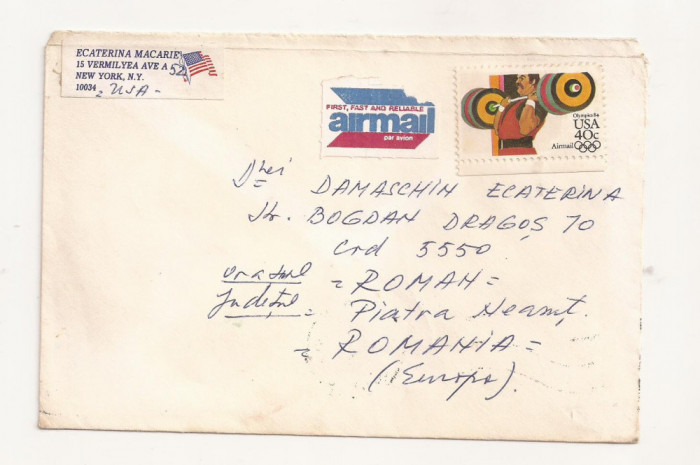 ECATERINA MACARIE
15 VERMILYEA AVE A 52
NEW YORK, N.Y.
10034 = USA -
FIRST, FAST AND RELIABLE
airmail
par avion
Olympics 84
USA
40c
Airmail
D=nei DAMASCHIN ECATERINA
Str. BOGDAN DRAGOȘ 70
Crd 5550
orașul = ROMAN =
Județul = Piatra Neamț.
= ROMANIA =
(Europa).